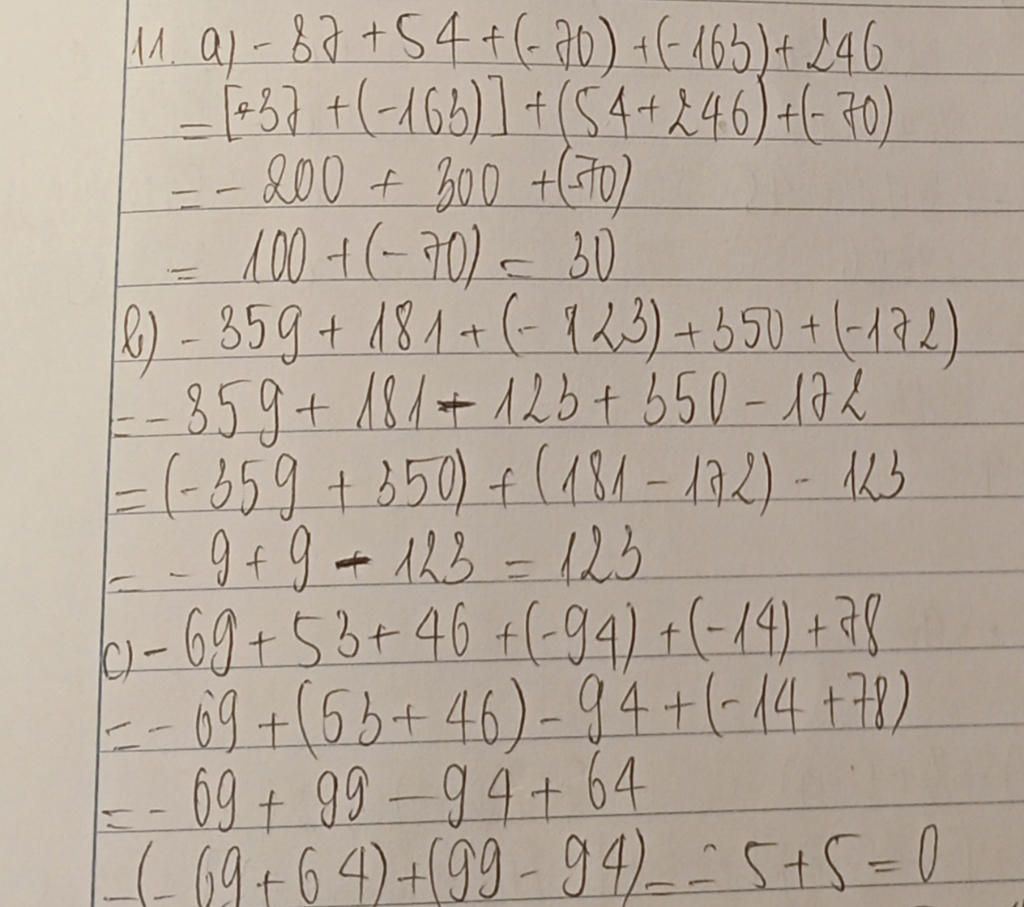 11. a) - 37 + 54 + (-70) + (-163) + 246
= [-37 + (-163)] + (54 + 246) + (-70)
= - 200 + 300 + (-70)
= 100 + (-70) = 30
b) - 359 + 181 + (- 123) + 350 + (-172)
= - 359 + 181 - 123 + 350 - 172
= (-359 + 350) + (181 - 172) - 123
= - 9 + 9 - 123 = 123
c) - 69 + 53 + 46 + (-94) + (-14) + 78
= - 69 + (53 + 46) - 94 + (-14 + 78)
= - 69 + 99 - 94 + 64
= (- 69 + 64) + (99 - 94) = - 5 + 5 = 0